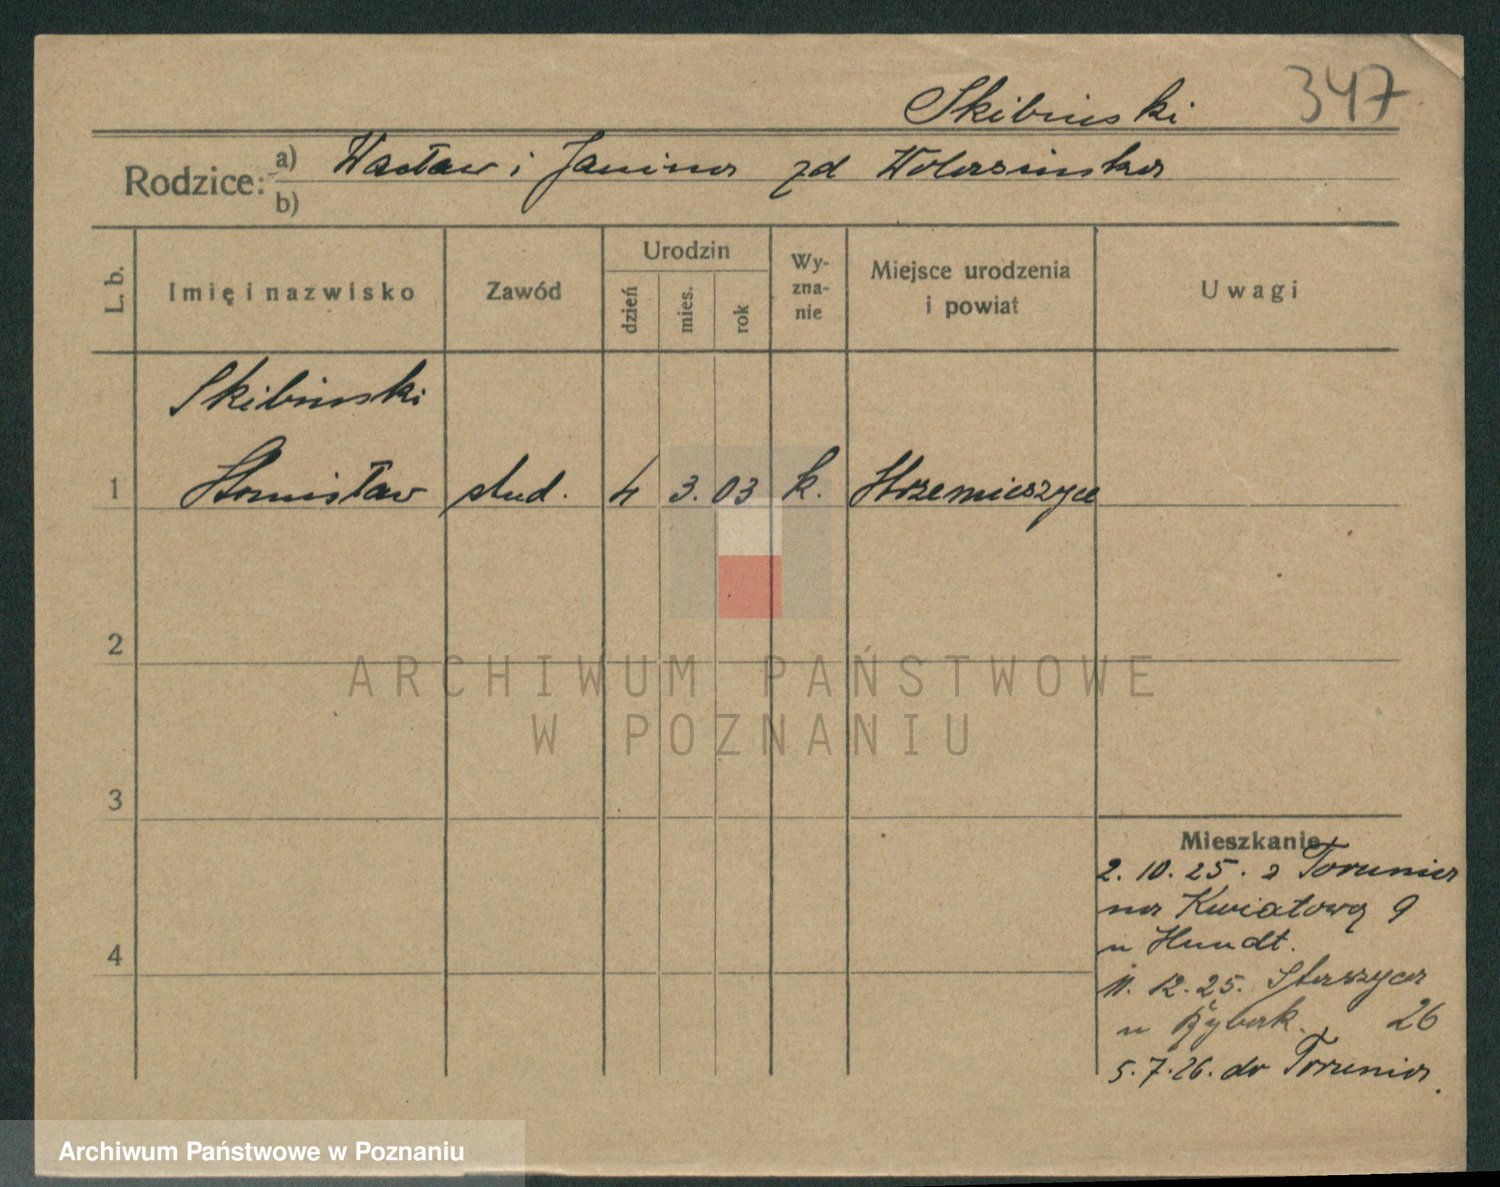 347
Skibinski
Rodzice: a) Wacław i Janina zd
b)
L. b.
Imię i nazwisko
Zawód
Urodzin
dzień
mies.
rok
Wy-
zna-
nie
Miejsce urodzenia
i powiat
Uwagi
Skibinski
1 Stanisław stud. 4 3. 03 k. Strzemieszyce
2
3
4
Mieszkanie
2. 10. 25. z Torunia
na Kwiatową 9
u Hundt.
11. 12. 25. Staszyca
u Rybak. 26
5. 7. 26. do Torunia.
ARCHIWUM PAŃSTWOWE
W POZNANIU
Archiwum Państwowe w Poznaniu